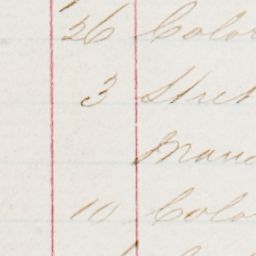 26 Color
3 Stret
Manu
10 Colo